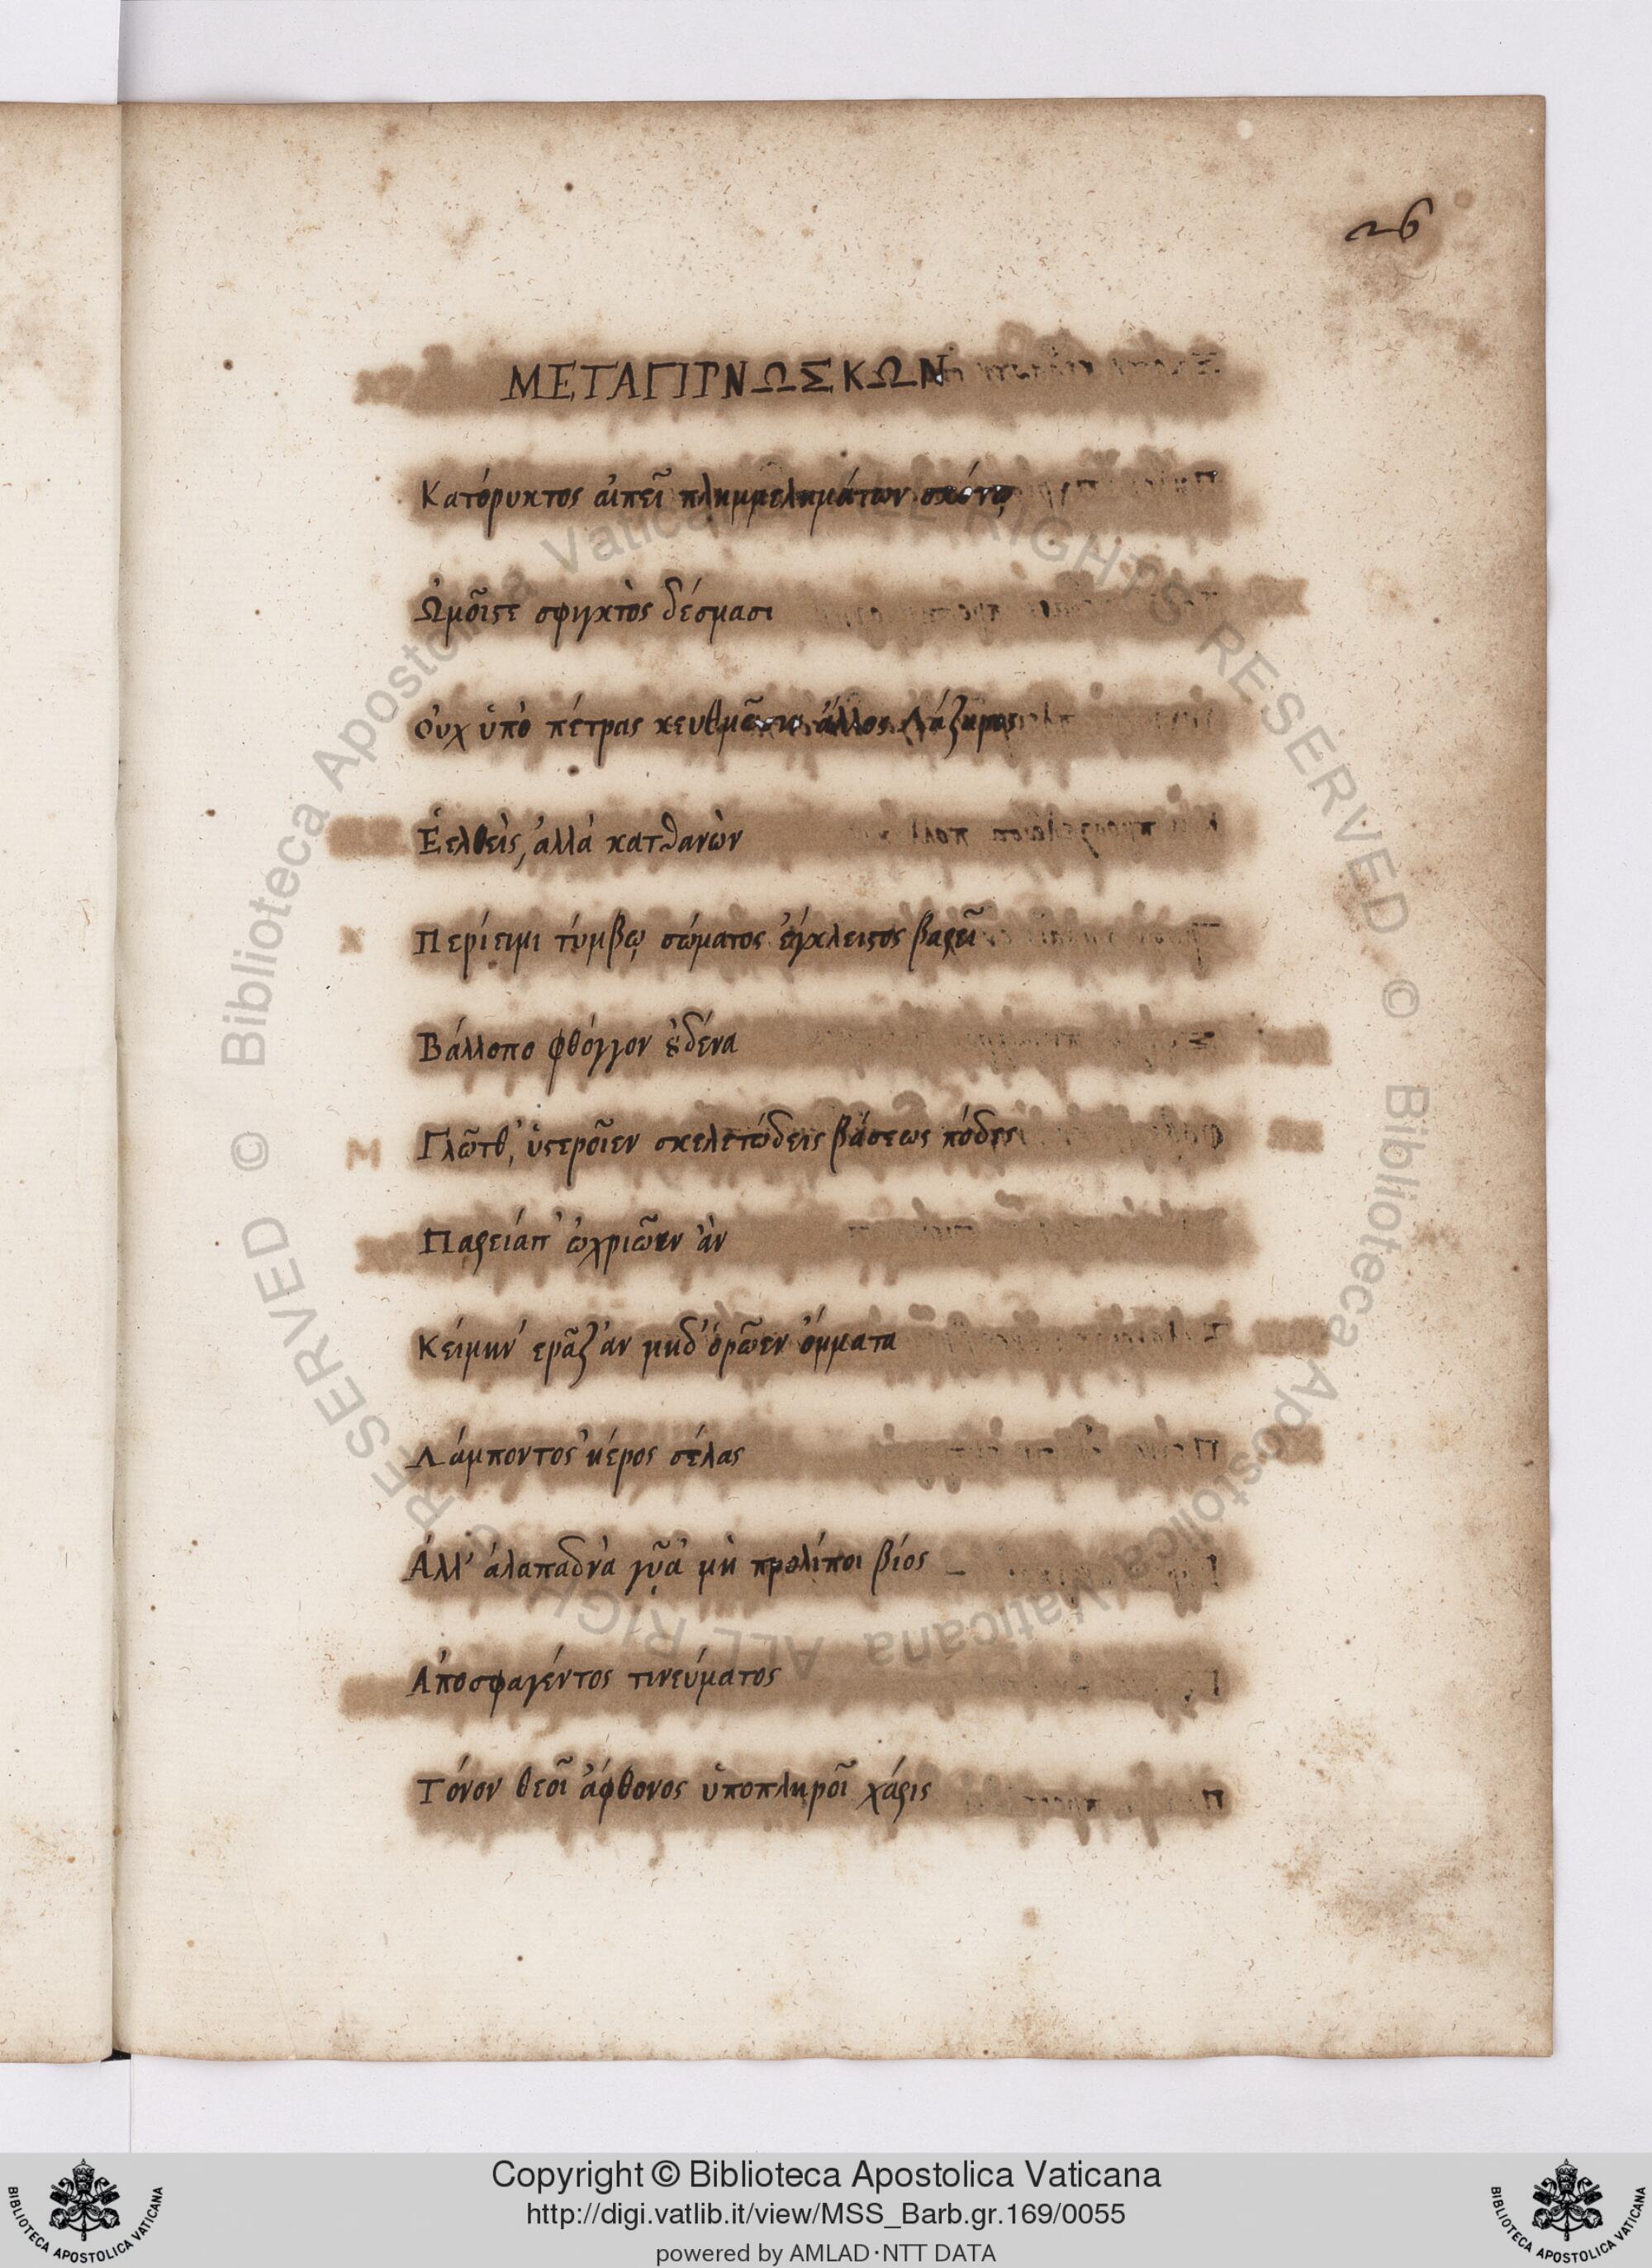 26
ΜΕΤΑΓΙΓΝΩΣΚΩΝ
Κατόρυκτος αἰπεῖ πλημμελημάτων σκότῳ
Ὠμοῖςε σφιγκτὸς δέσμασι
Οὐχ ὑπὸ πέτρας κευθμῶσιν ἄλλος Λάζαρος
Ἑελθεὶς, ἀλλὰ κατθανὼν
Περίειμι τύμβῳ σώματος ἐγκλειςος βαρεῖ
Βάλλοπο φθόγγον ȣδένα
Γλῶτθ', ὑςεροῖεν σκελετώδεις βάσεως πόδες
Παρείαπ' ὠχριῶεν ἂν
Κείμην' ερᾶζ' ἀν μηδ' ὁρῶεν ὄμματα
Λάμποντος' ηέρος σέλας
Ἀλλ' ἀλαπαδνὰ γυῖα μὴ προλίποι βίος
Ἀποσφαγέντος πνεύματος
Τόνον θεοῖ ἄφθονος ὑποπληροῖ χάρις
© Biblioteca Apostolica Vaticana ALL RIGHTS RESERVED © Biblioteca Apostolica Vaticana ALL RIGHTS RESERVED
BIBLIOTECA APOSTOLICA VATICANA
Copyright © Biblioteca Apostolica Vaticana
http://digi.vatlib.it/view/MSS_Barb.gr.169/0055
powered by AMLAD·NTT DATA
BIBLIOTECA APOSTOLICA VATICANA